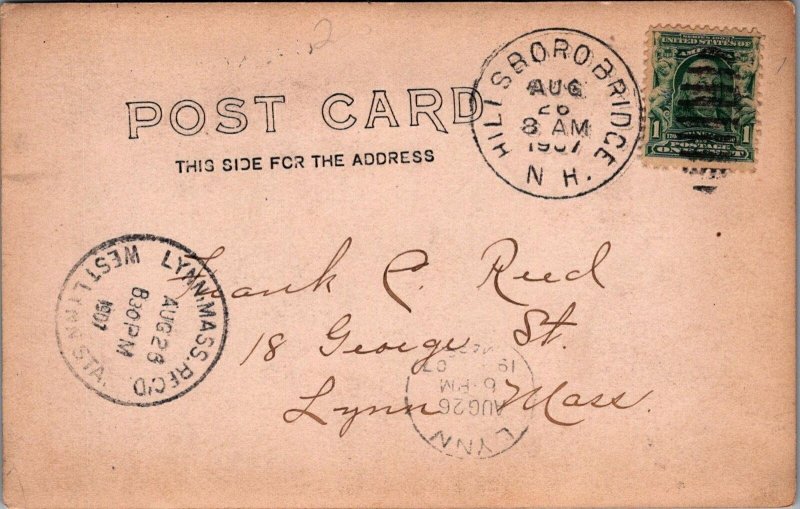 HILLSBORO BRIDGE
AUG
26
8 AM
1907
N H.
UNITED STATES OF
1 1
POSTAGE
ONE CENT
POST CARD
THIS SIDE FOR THE ADDRESS
LYNN, MASS. REC'D.
WEST LYNN STA.
AUG 26
830 PM
1907
Frank C. Reed
18 George St.
Lynn Mass.
LYNN
AUG 26
6 PM
19 07
MASS